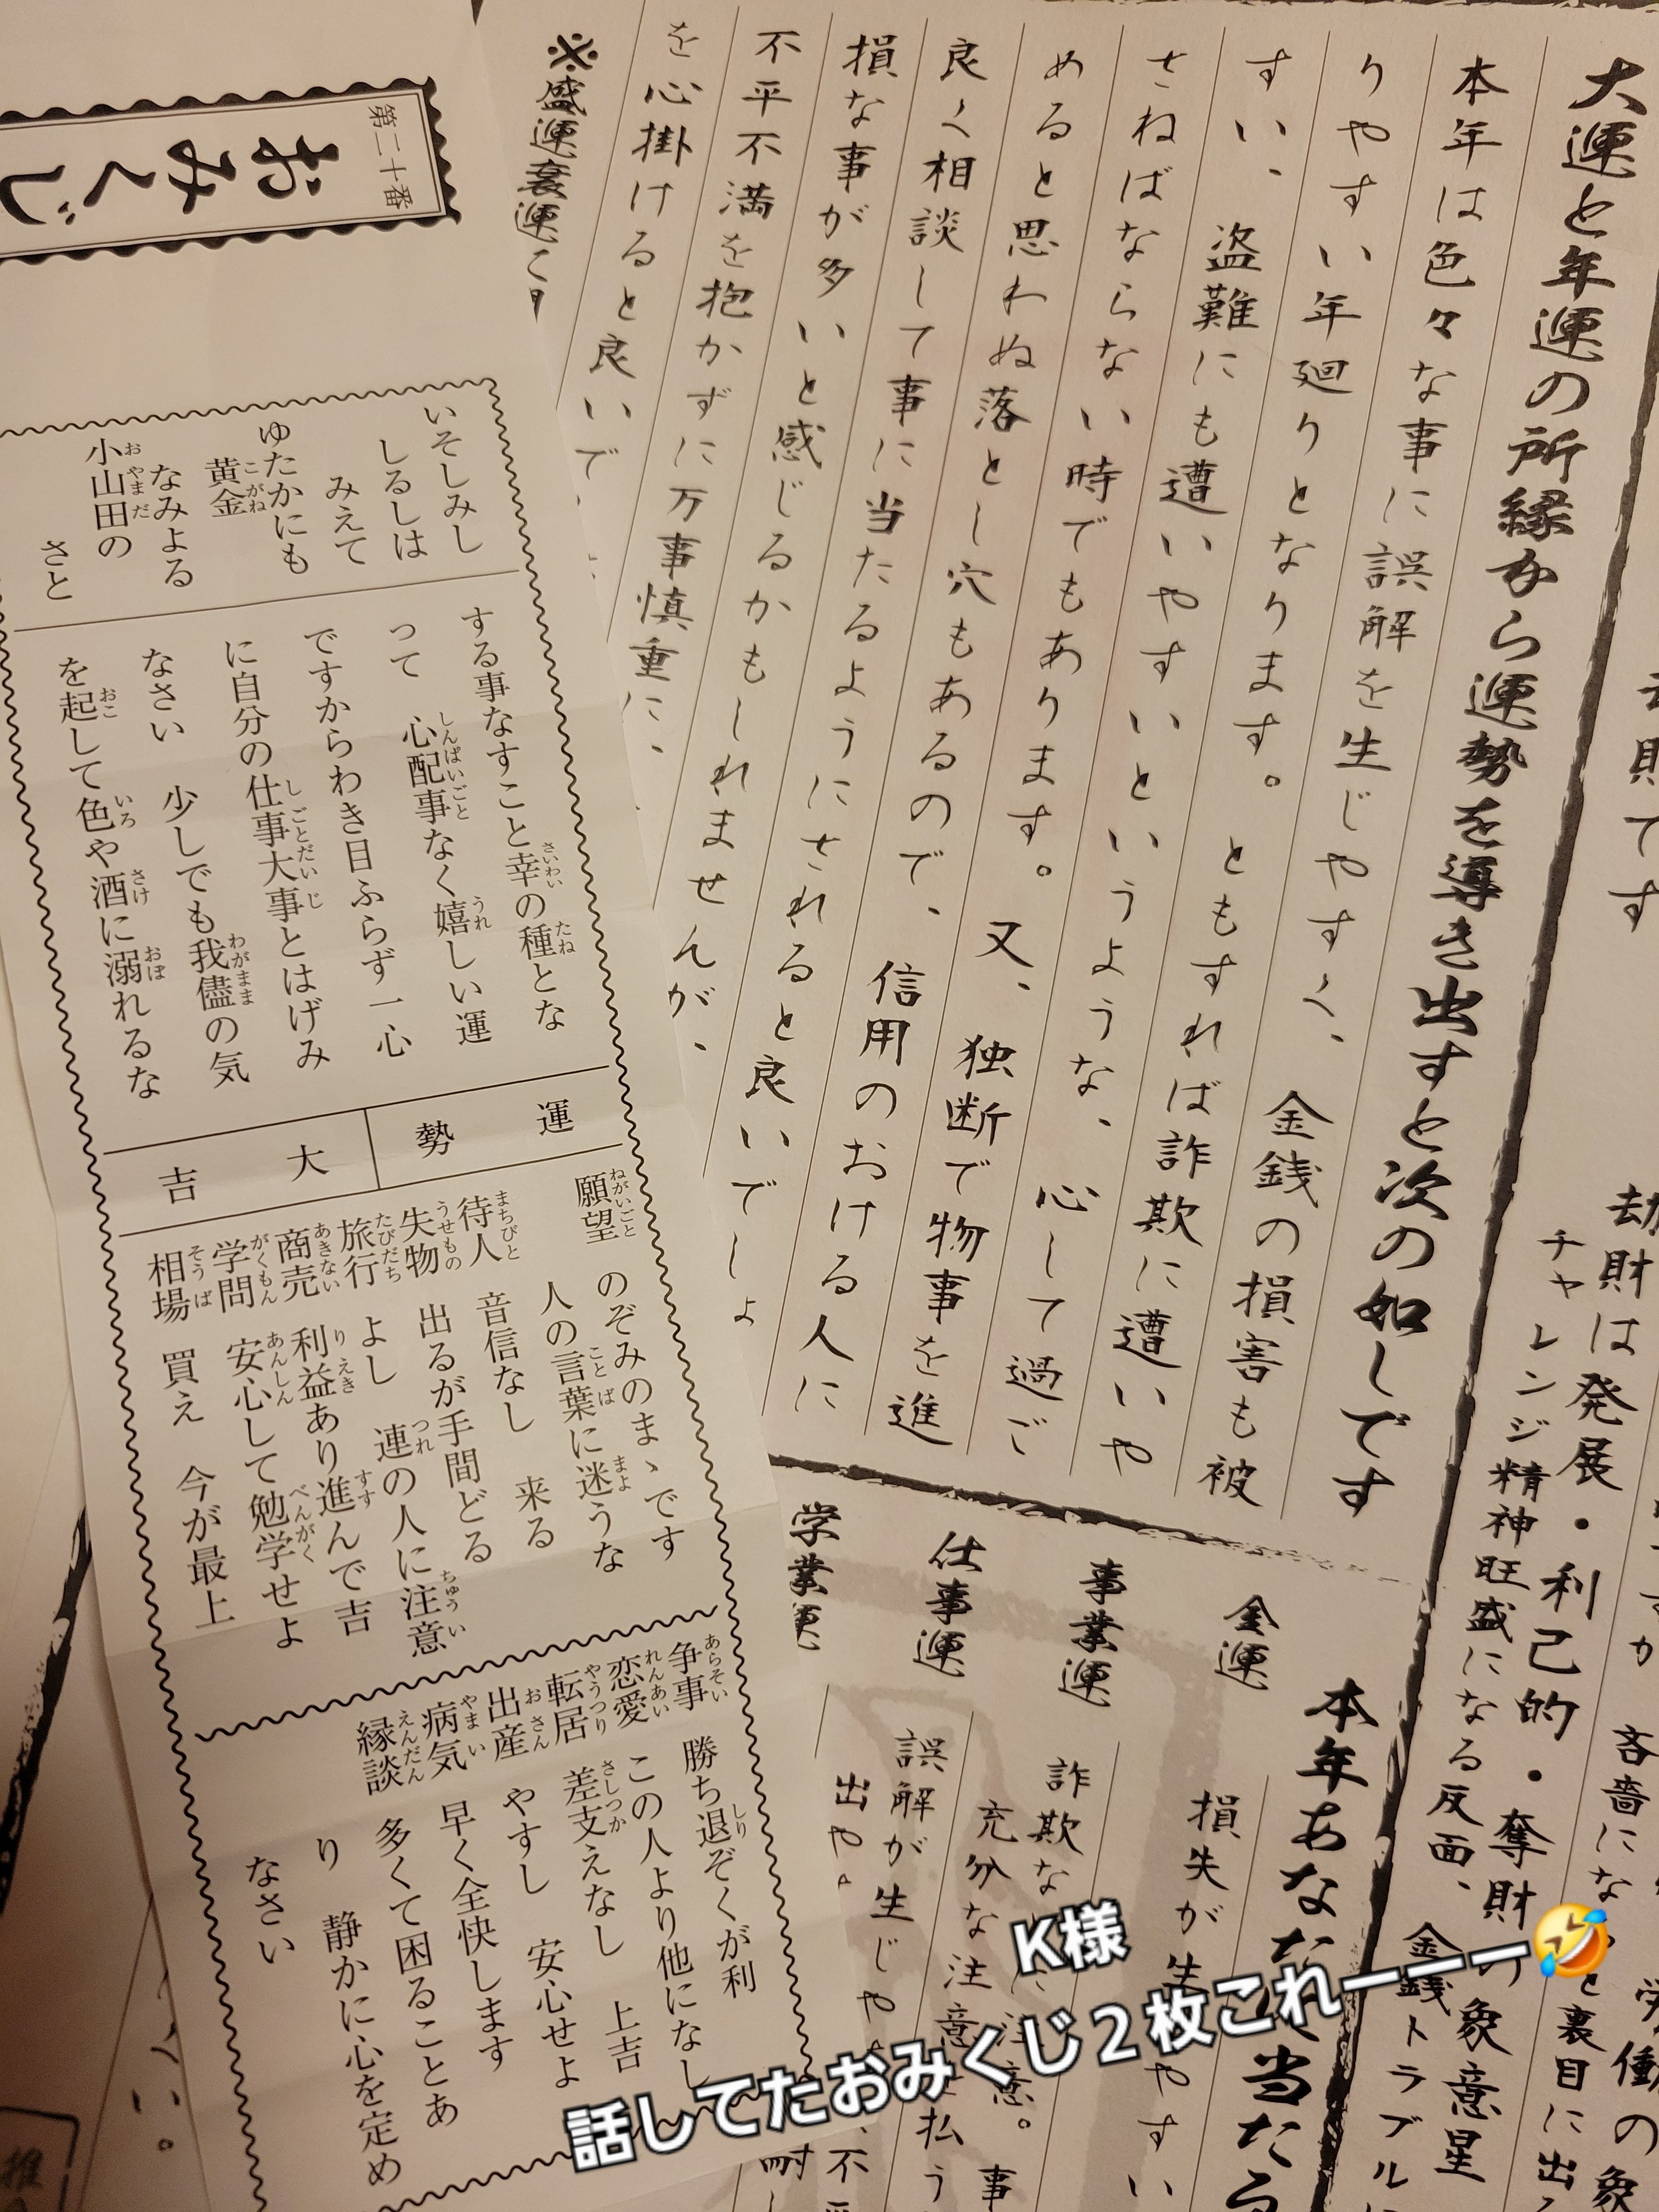 大運と年運の所縁から運勢を導き出すと次の如しです
本年は色々な事に誤解を生じやすく、金銭の損害も被
りやすい年廻りとなります。ともすれば詐欺に遭いや
すい、盗難にも遭いやすいというような、心して過ご
さねばならない時でもあります。又、独断で物事を進
めると思わぬ落とし穴もあるので、信用のおける人に
良く相談して事に当たるようにされると良いでしょ
損な事が多いと感じるかもしれませんが、
不平不満を抱かずに万事慎重に、
を心掛けると良いで
※盛運衰運
劫財は発展・利己的・奪財の象意星
チャレンジ精神旺盛になる反面、金銭トラブル
本年あなたに当たる
金運
損失が生じやすい
事業運
詐欺などに注意。事
仕事運
充分な注意を払う
誤解が生じや
学業運
出や
第二十番
おみくじ
いそしみし
しるしは
みえて
ゆたかにも
黄金
なみよる
小山田の
さと
する事なすこと幸の種とな
って 心配事なく嬉しい運
ですからわき目ふらず一心
に自分の仕事大事とはげみ
なさい 少しでも我儘の気
を起して色や酒に溺れるな
運勢
大吉
願望 のぞみのまゝです
人の言葉に迷うな
待人 音信なし 来る
失物 出るが手間どる
旅行 よし 連の人に注意
商売 利益あり進んで吉
学問 安心して勉学せよ
相場 買え 今が最上
争事 勝ち退ぞくが利
恋愛 この人より他になし
転居 差支えなし 上吉
出産 やすし 安心せよ
病気 早く全快します
縁談 多くて困ることあ
り 静かに心を定め
なさい
K様
話してたおみくじ2枚これーーー🤣